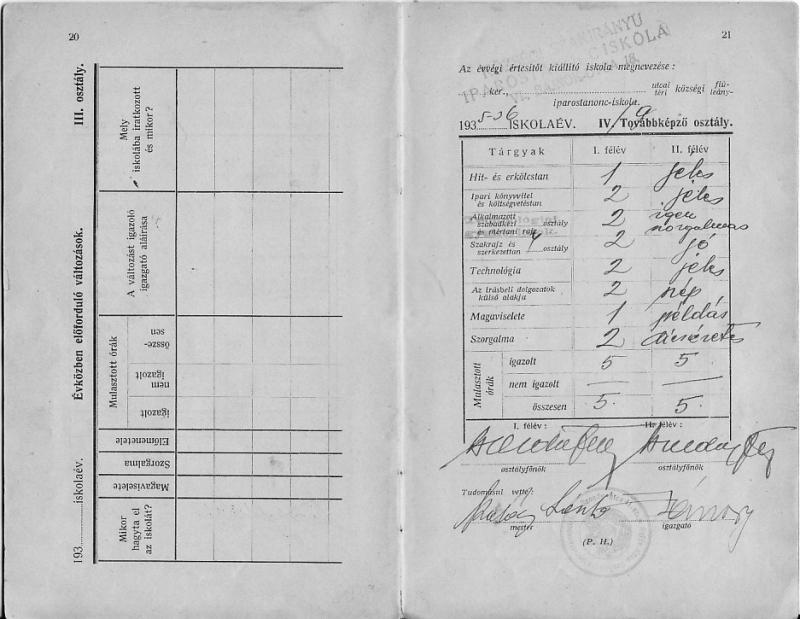 20
III. osztály.
Évközben előforduló változások.
193 iskolaév.
Mely iskolába iratkozott és mikor?
A változást igazoló igazgató aláírása
Mulasztott órák
össze-sen
nem igazolt
igazolt
Előmenetele
Szorgalma
Magaviselete
Mikor hagyta el az iskolát?
21
IRÁNYÚ
IPAROS ISKOLA
Az évvégi értesítőt kiállító iskola megnevezése :
ker., utcai téri községi fiú- leány-
iparostanonc-iskola.
1935-36 ISKOLAÉV. IV. Továbbképző osztály.
Tárgyak I. félév II. félév
Hit- és erkölcstan 1 jeles
Ipari könyvvitel és költségvetéstan 2 jeles
Alkalmazott szabadkézi és mértani rajz osztály 2 igen szorgalmas
Szakrajz és szerkezettan osztály 2 jó
Technológia 2 jeles
Az írásbeli dolgozatok külső alakja 2 nép
Magaviselete 1 példás
Szorgalma 2 dicséretes
Mulasztott órák
igazolt 5 5
nem igazolt — —
összesen 5. 5.
I. félév : II. félév :
osztályfőnök osztályfőnök
Tudomásul vette:
mester igazgató
(P. H.)